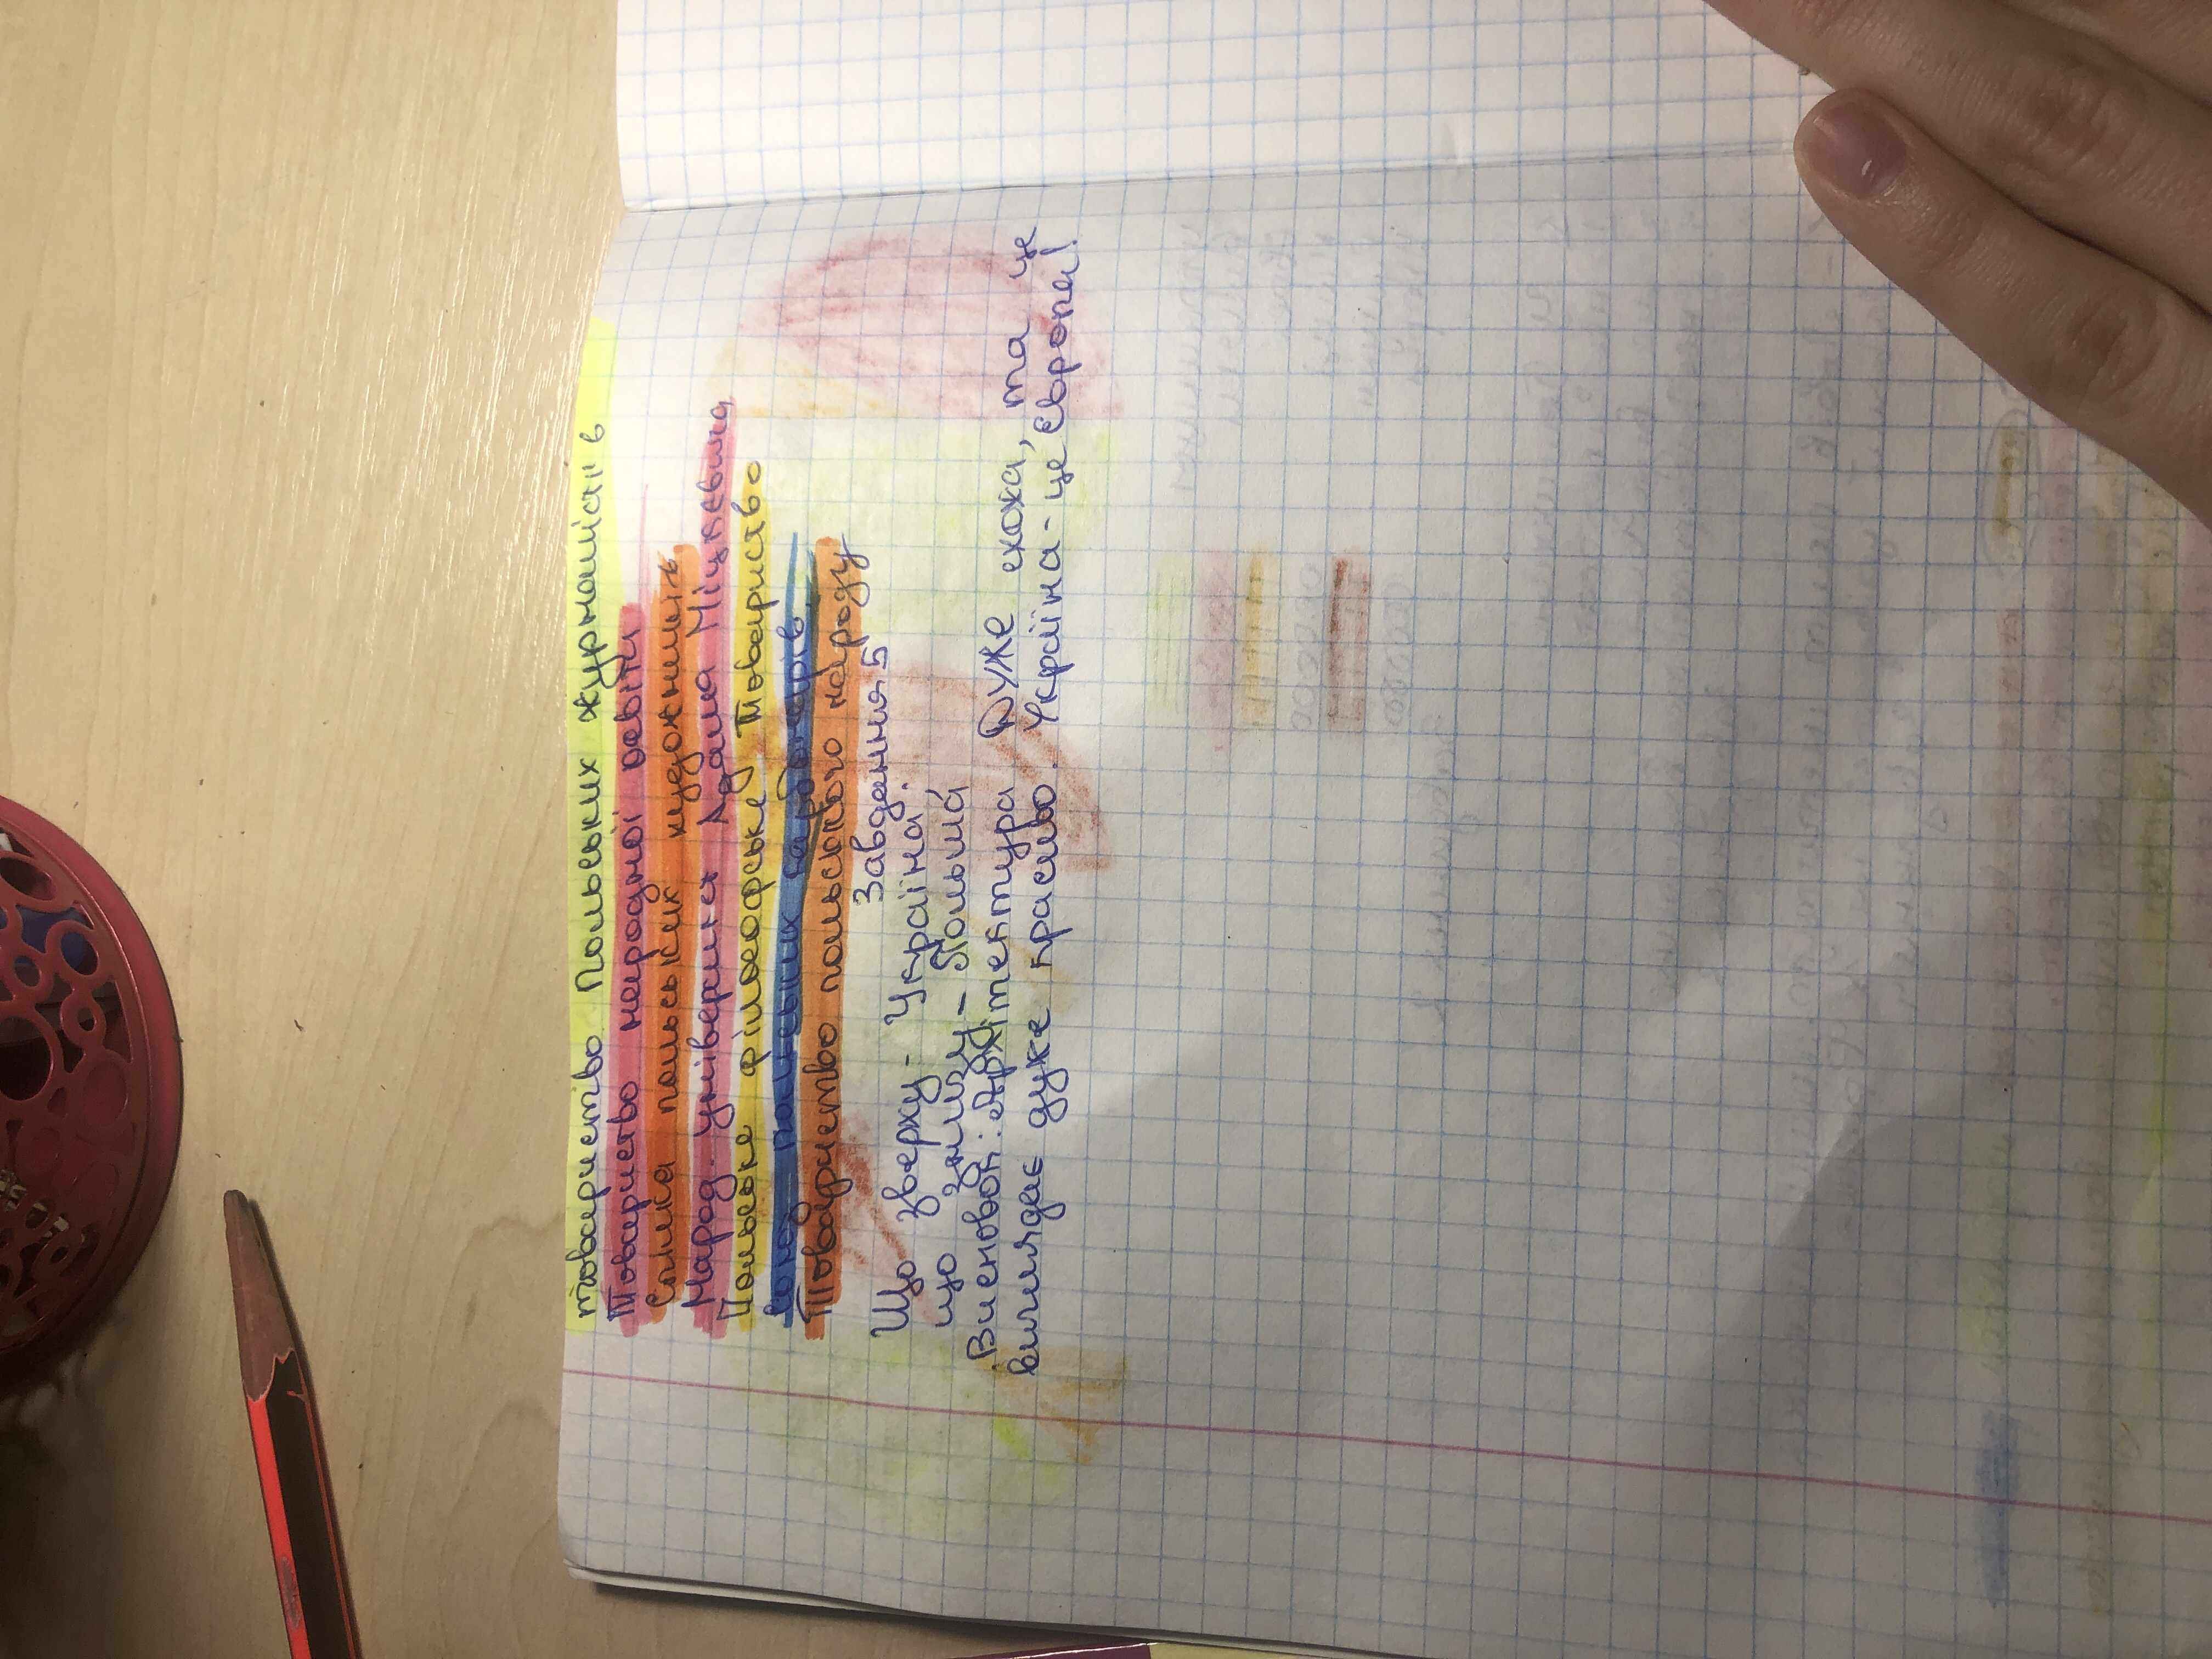 товариство Польських журналістів
Товариство народної освіти
Спілка польських художників
Народ. університет Адама Міцкевича
Польське філософське Товариство
Союз польських
Товариство польського народу
Завдання 5
Що зверху - Україна.
що знизу - Польща
Висновок: Архітектура Дуже схожа, та це
виглядає дуже красиво. Україна - це Європа!